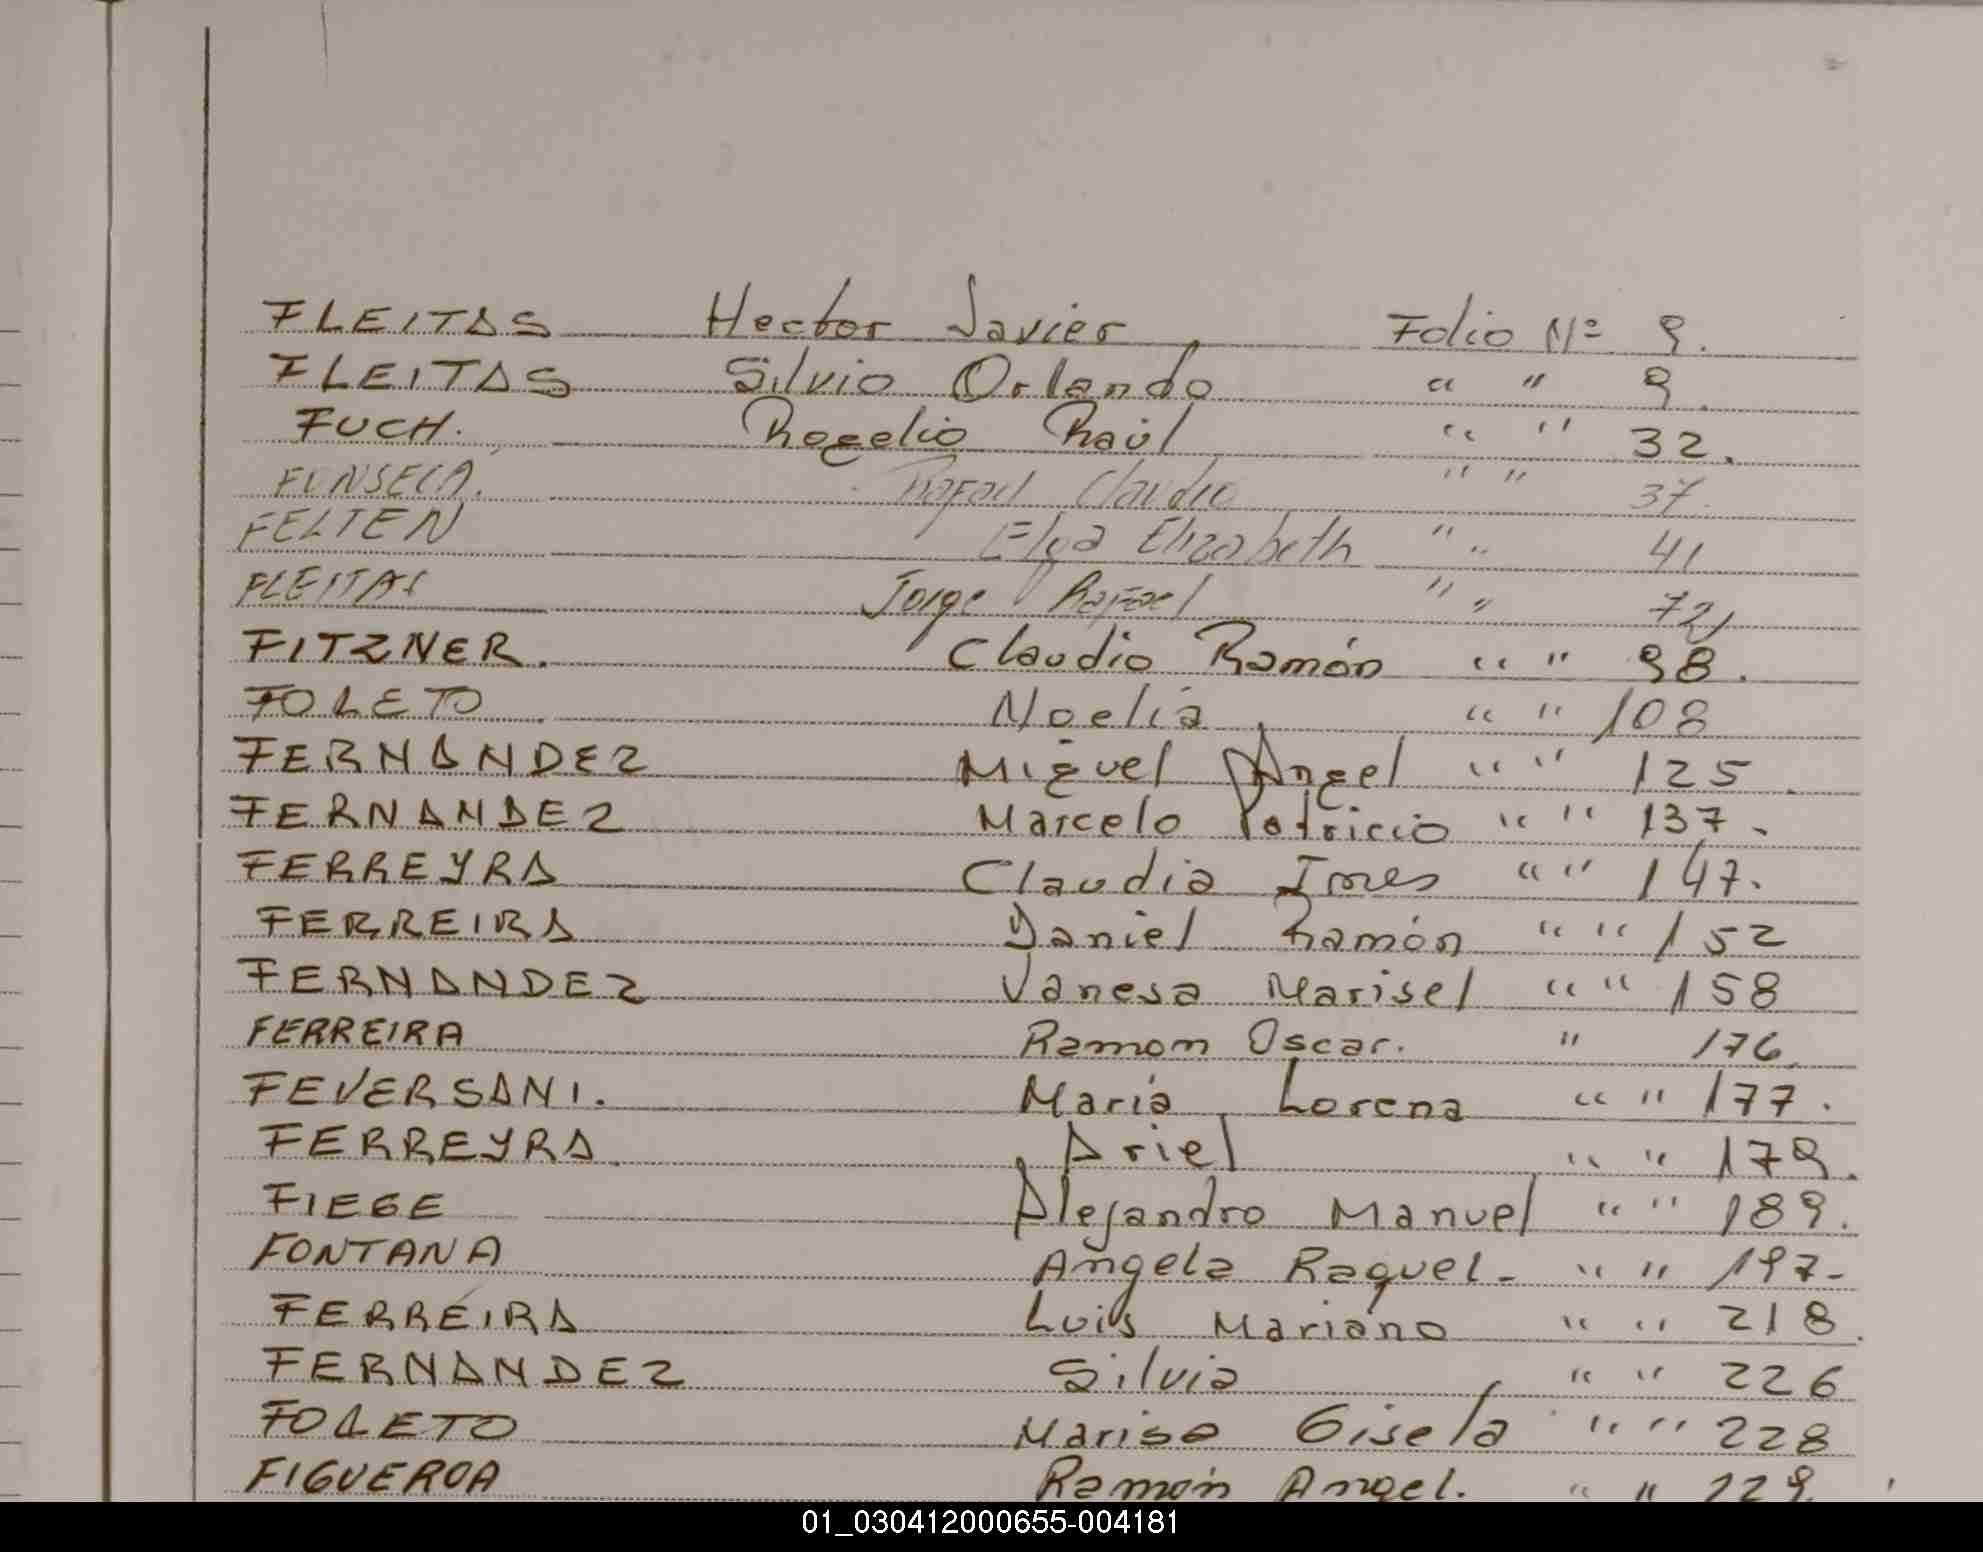 FLEITAS Hector Javier Folio Nº 9.
FLEITAS Silvio Orlando " " 9.
FUCH. Rogelio Raúl " " 32.
FONSECA. Rafael Claudio " " 37.
FELTEN Elga Elizabeth " " 41
FLEITAS Jorge Rafael " " 72
FITZNER. Claudio Ramón " " 98.
FOLETO Noelia " " 108
FERNANDEZ Miguel Angel " " 125.
FERNANDEZ Marcelo Patricio " " 137.
FERREYRA Claudia Ines " " 147.
FERREIRA Daniel Ramón " " 152
FERNANDEZ Vanesa Marisel " " 158
FERREIRA Ramon Oscar. " 176.
FEVERSANI. Maria Lorena " " 177.
FERREYRA Ariel " " 179.
FIEGE Alejandro Manuel " " 189.
FONTANA Angela Raquel. " " 197-
FERREIRA Luis Mariano " " 218.
FERNANDEZ Silvia " " 226
FOLETO Marisa Gisela " " 228
FIGUEROA Ramón Angel. " " 229
01_030412000655-004181